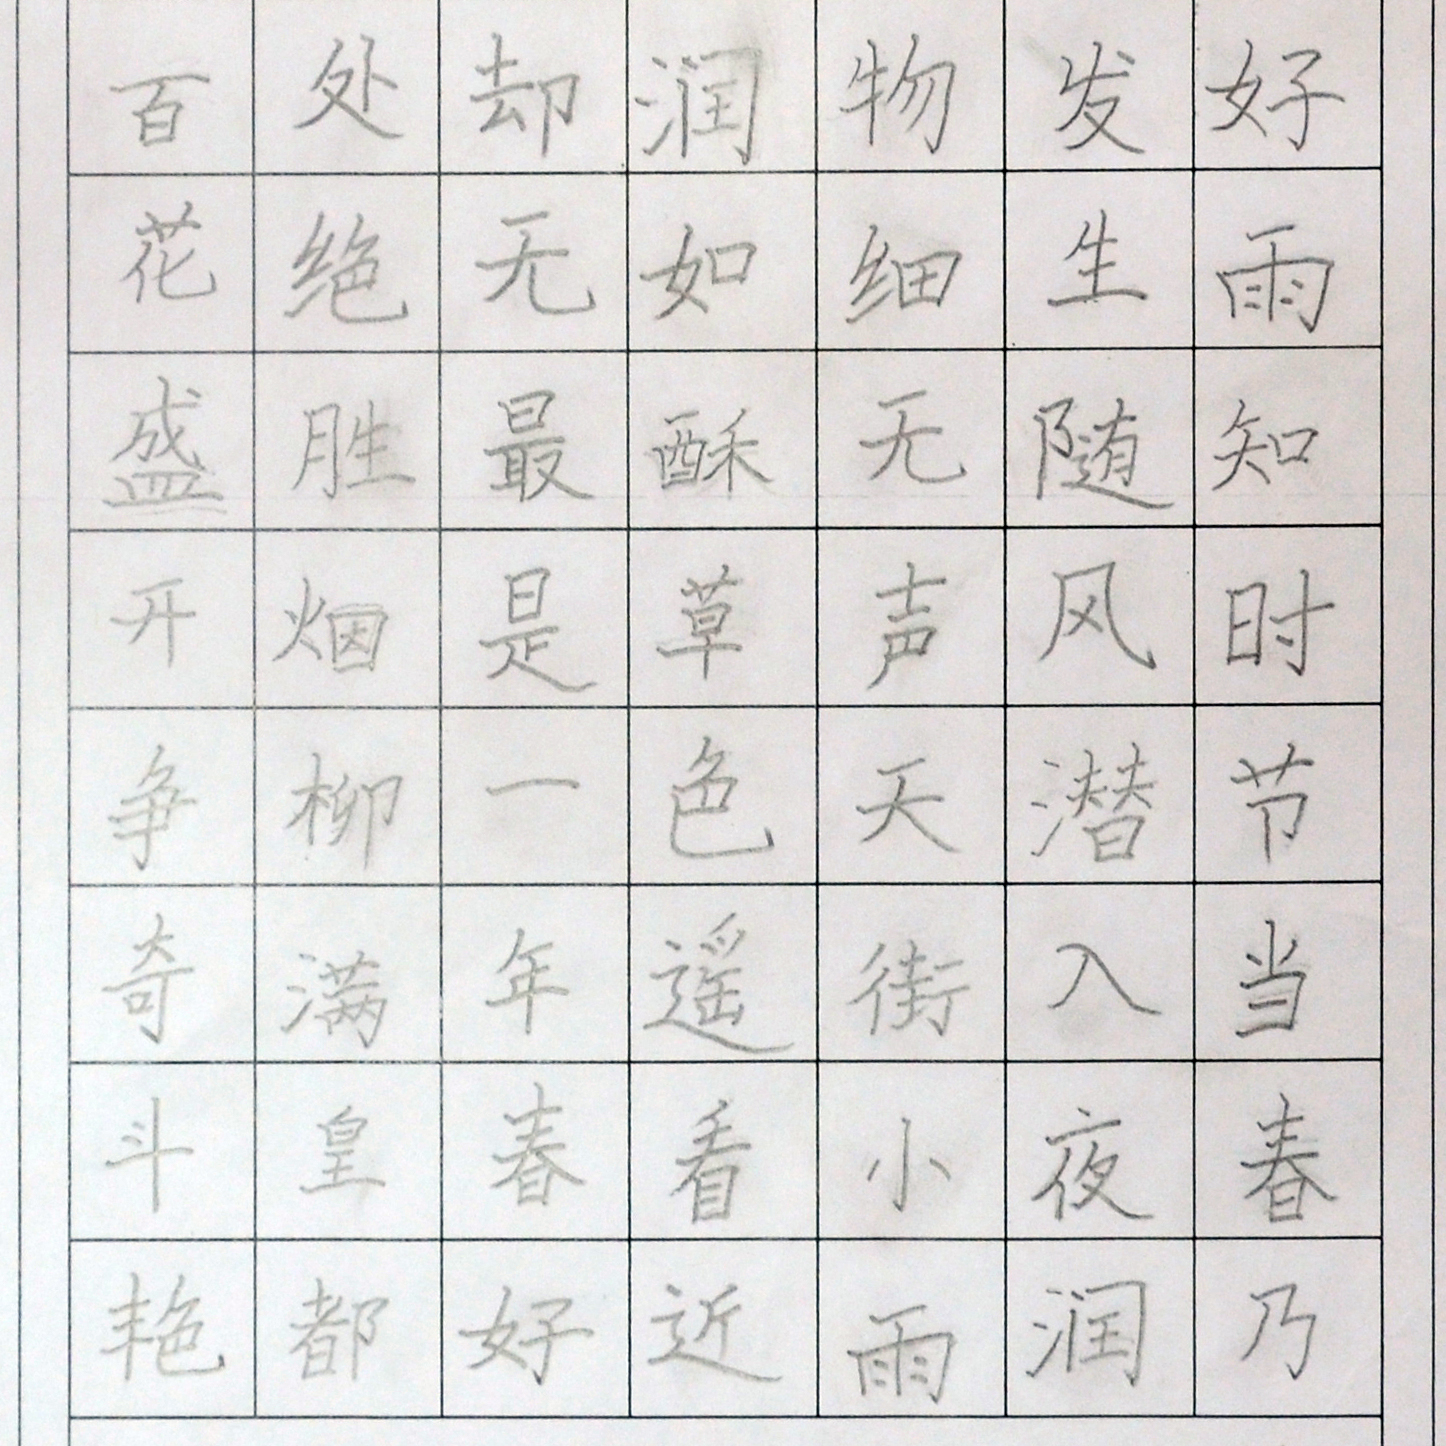 好雨知时节当春乃
发生随风潜入夜润
物细无声天街小雨
润如酥草色遥看近
却无最是一年春好
处绝胜烟柳满皇都
百花盛开争奇斗艳